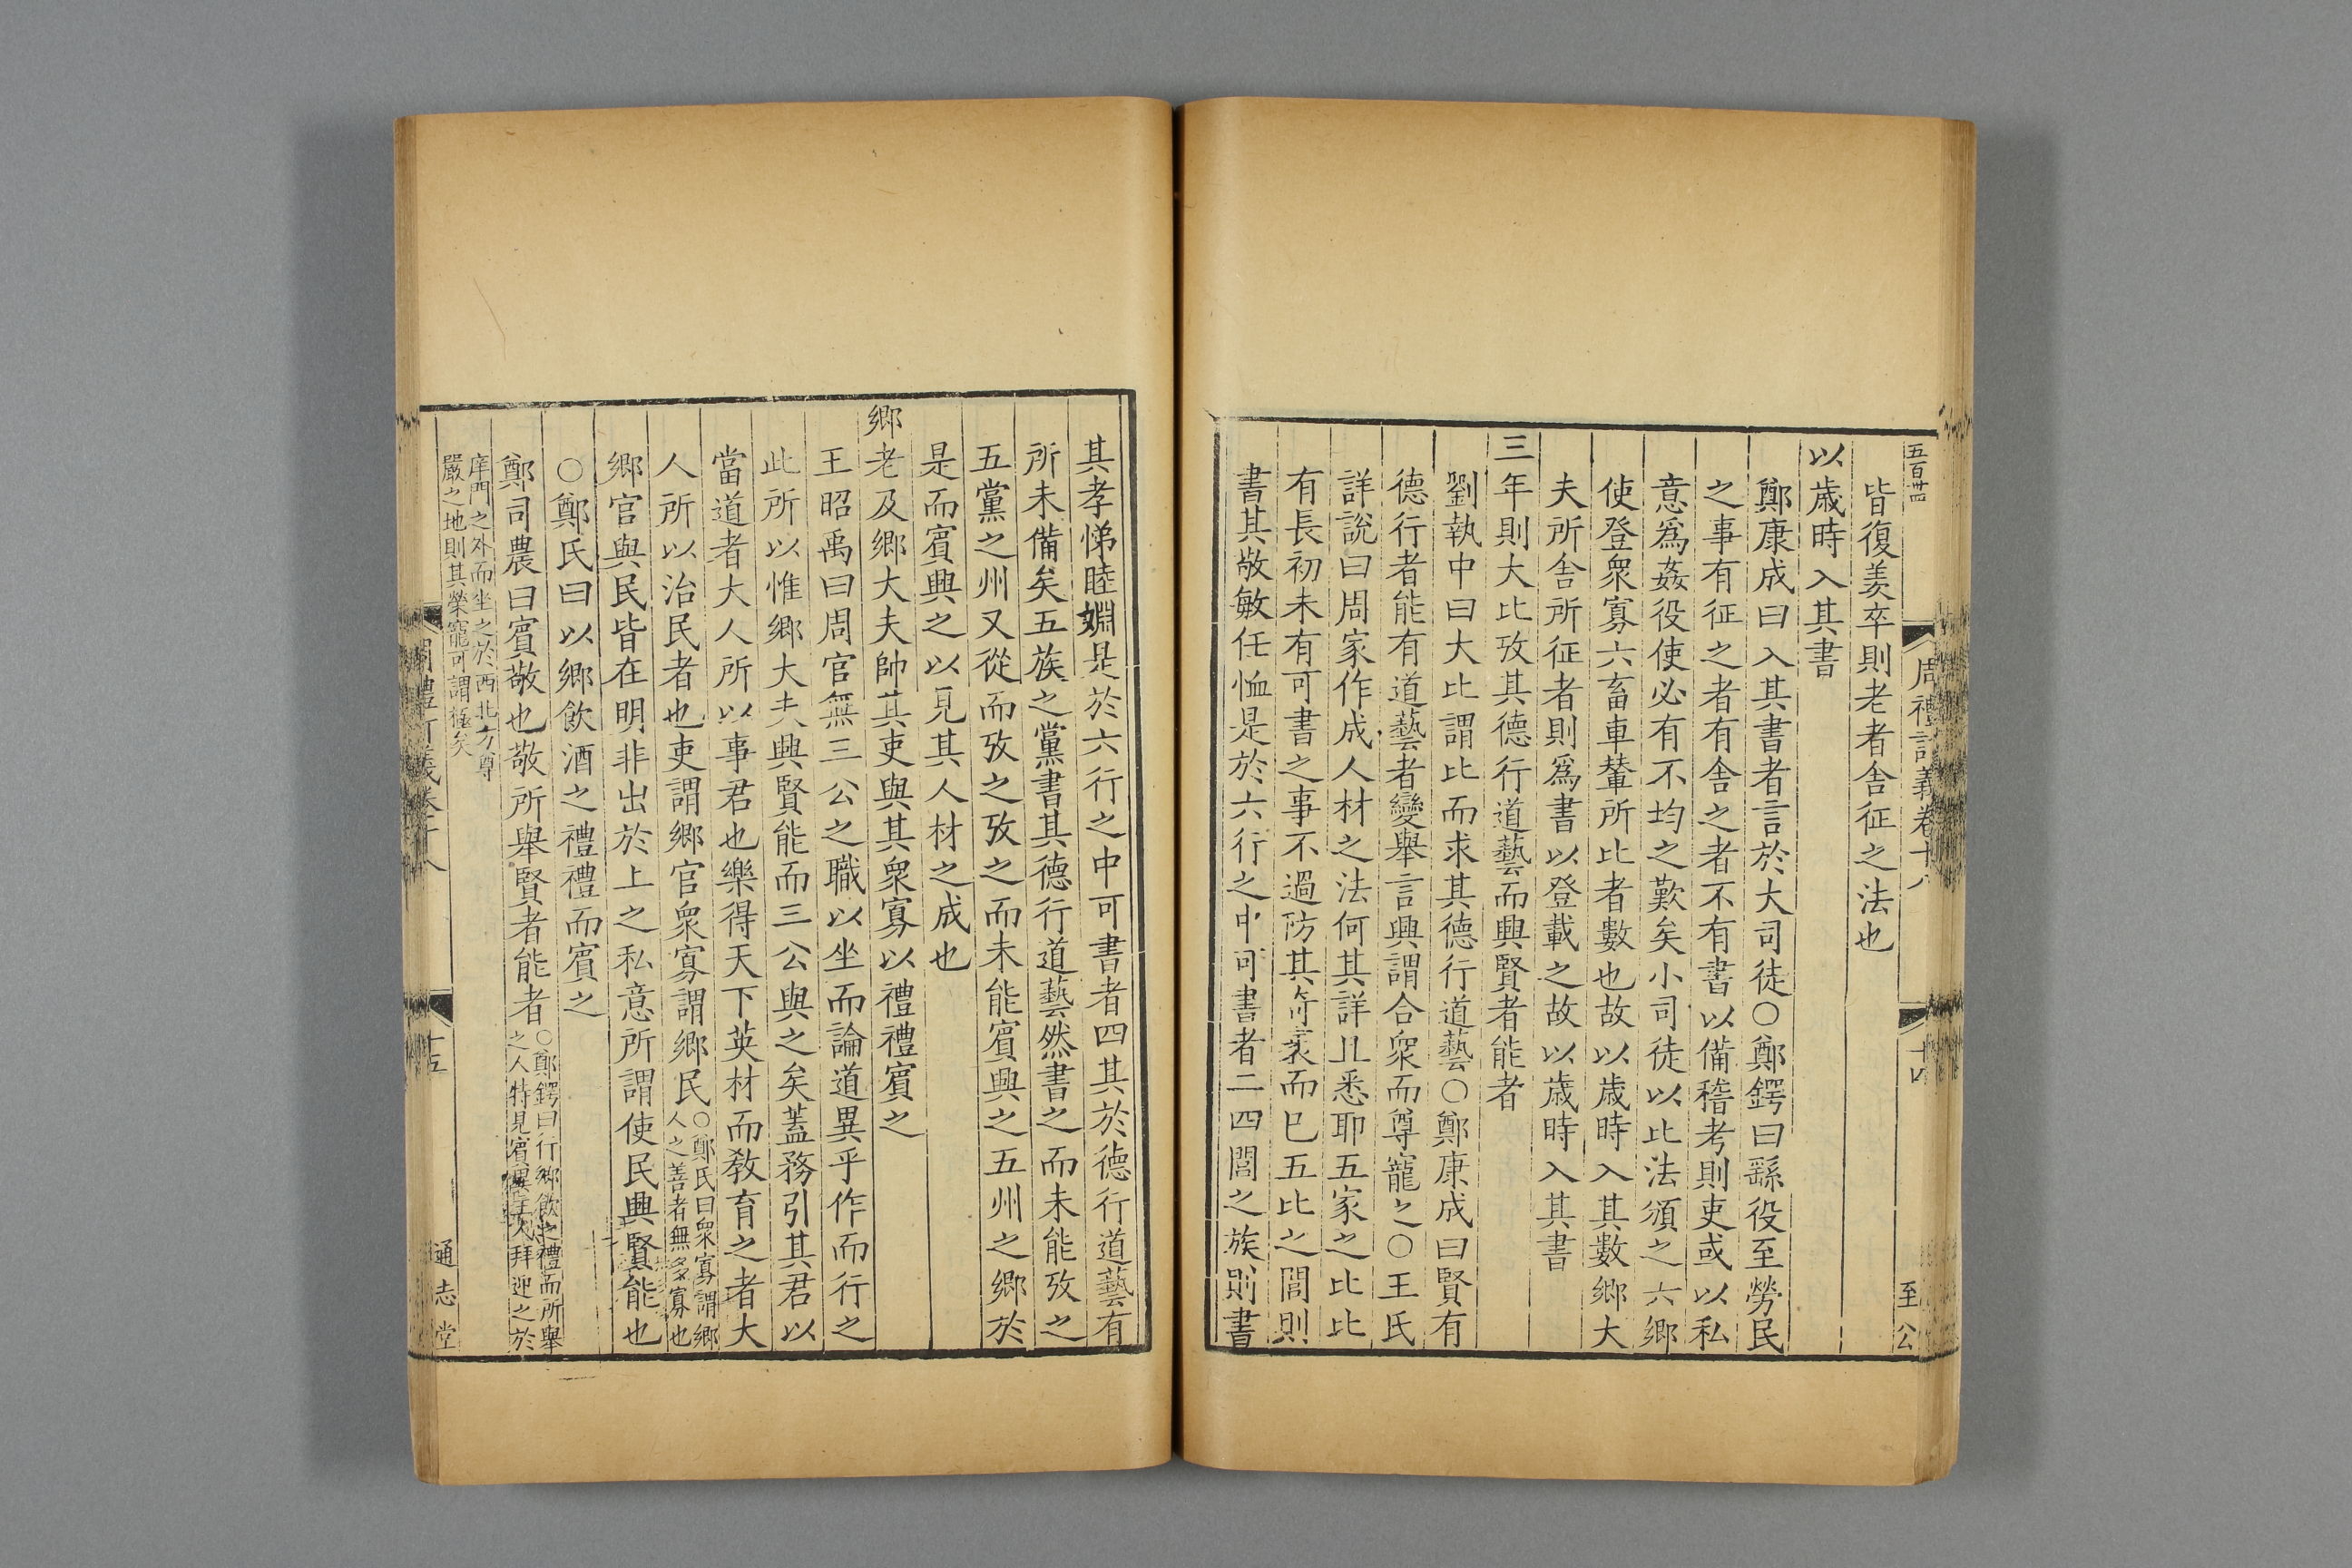 五百卅四
周禮訂義卷十八
十四
至公
皆復羨卒則老者舍征之法也
以歲時入其書
鄭康成曰入其書者言於大司徒○鄭鍔曰繇役至勞民
之事有征之者有舍之者不有書以備稽考則吏或以私
意爲姦役使必有不均之歎矣小司徒以比法頒之六鄉
使登衆寡六畜車輦所比者數也故以歲時入其數鄉大
夫所舍所征者則爲書以登載之故以歲時入其書
三年則大比攷其德行道藝而興賢者能者
劉執中曰大比謂比而求其德行道藝○鄭康成曰賢有
德行者能有道藝者變舉言興謂合衆而尊寵之○王氏
詳說曰周家作成人材之法何其詳且悉耶五家之比比
有長初未有可書之事不過防其奇衺而已五比之閭則
書其敬敏任恤是於六行之中可書者二四閭之族則書
其孝悌睦婣是於六行之中可書者四其於德行道藝有
所未備矣五族之黨書其德行道藝然書之而未能攷之
五黨之州又從而攷之攷之而未能賓興之五州之鄉於
是而賓興之以見其人材之成也
鄉老及鄉大夫帥其吏與其衆寡以禮禮賓之
王昭禹曰周官無三公之職以坐而論道異乎作而行之
此所以惟鄉大夫興賢能而三公與之矣蓋務引其君以
當道者大人所以事君也樂得天下英材而敎育之者大
人所以治民者也吏謂鄉官衆寡謂鄉民○鄭氏曰衆寡謂鄉
人之善者無多寡也
鄉官與民皆在明非出於上之私意所謂使民興賢能也
○鄭氏曰以鄉飲酒之禮禮而賓之
鄭司農曰賓敬也敬所舉賢者能者○鄭鍔曰行鄉飲之禮而所舉
之人特見賓拜迎之於
庠門之外而坐之於西北方尊
嚴之地則其榮寵可謂極矣
周禮訂義卷十八
十五
通志堂